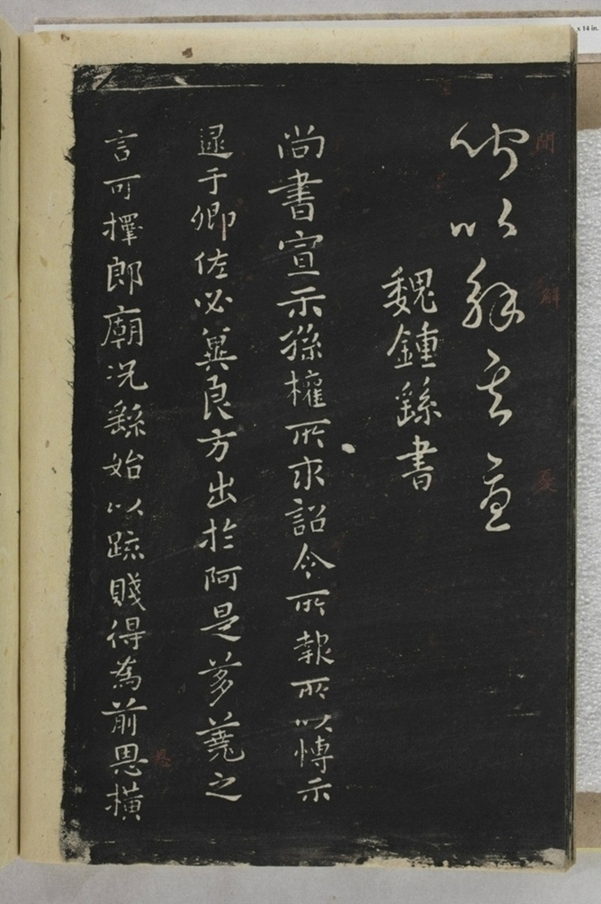 x 14 in.
間
解
間以解其
魏鍾繇書
尚書宣示孫權所求詔令所報所以愽示
逮于卿佐必冀良方出於阿是芻蕘之
言可擇郎廟況繇始以疏賤得為前恩橫